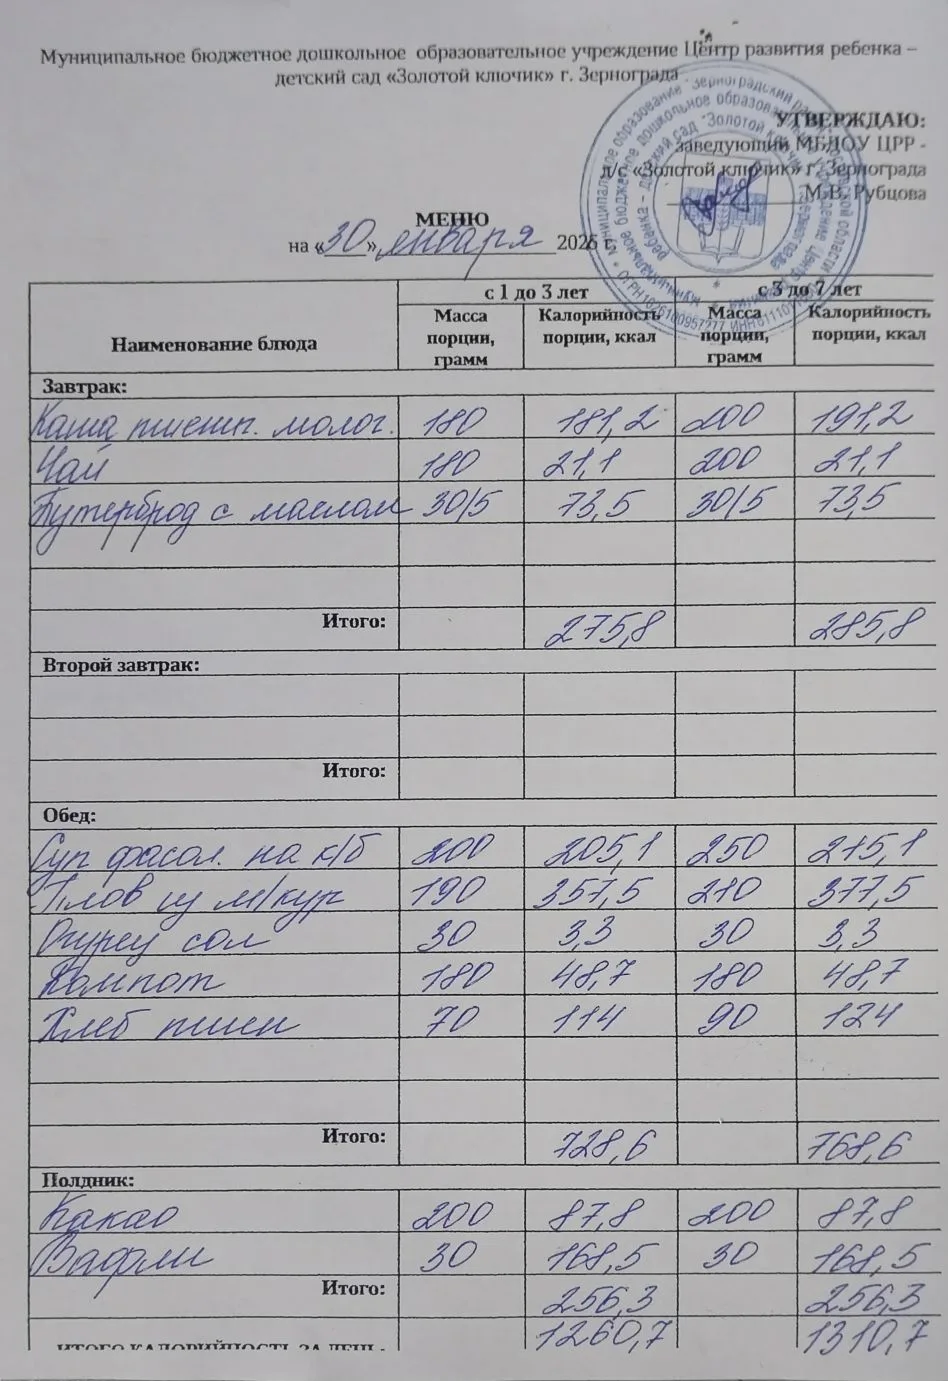 Муниципальное бюджетное дошкольное образовательное учреждение Центр развития ребенка –
детский сад «Золотой ключик» г. Зернограда
УТВЕРЖДАЮ:
заведующий МБДОУ ЦРР -
д/с «Золотой ключик» г. Зернограда
М.В. Рубцова
МЕНЮ
на «30» января 2026 г.
Наименование блюда с 1 до 3 лет с 3 до 7 лет
Масса порции, грамм Калорийность порции, ккал Масса порции, грамм Калорийность порции, ккал
Завтрак:
Каша пшенн. молог. 180 181,2 200 191,2
Чай 180 21,1 200 21,1
Бутерброд с маслом 30/5 73,5 30/5 73,5
Итого: 275,8 285,8
Второй завтрак:
Итого:
Обед:
Суп фасол. на к/б 200 205,1 250 215,1
Плов из м/кур 190 357,5 210 377,5
Огурец сол 30 3,3 30 3,3
Компот 180 48,7 180 48,7
Хлеб пшен 70 114 90 124
Итого: 728,6 768,6
Полдник:
Какао 200 87,8 200 87,8
Вафли 30 168,5 30 168,5
Итого: 256,3 256,3
ИТОГО КАЛОРИЙНОСТЬ ЗА ДЕНЬ: 1260,7 1310,7